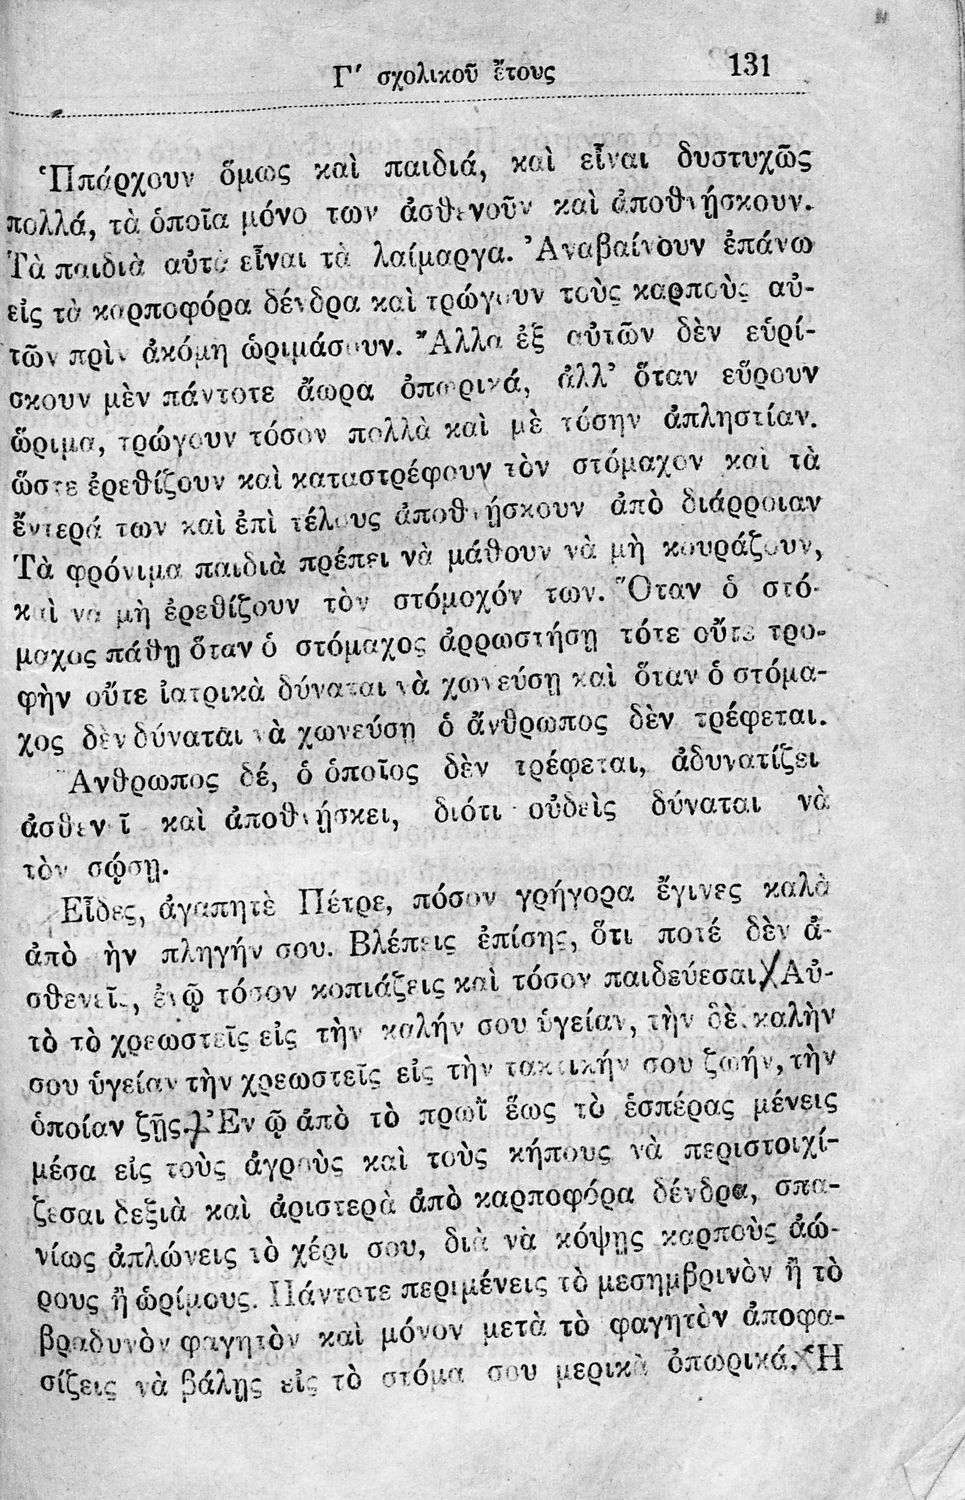 Γ′ σχολικοῦ ἔτους 131
Ὑπάρχουν ὅμως καὶ παιδιά, καὶ εἶναι δυστυχῶς
πολλά, τὰ ὁποῖα μόνο των ἀσθενοῦν καὶ ἀποθνῄσκουν.
Τὰ παιδιὰ αὐτὰ εἶναι τὰ λαίμαργα. Ἀναβαίνουν ἐπάνω
εἰς τὰ καρποφόρα δένδρα καὶ τρώγουν τοὺς καρποὺς αὐ-
τῶν πρὶν ἀκόμη ὡριμάσουν. Ἄλλα ἐξ αὐτῶν δὲν εὑρί-
σκουν μὲν πάντοτε ἄωρα ὀπωρικά, ἀλλ’ ὅταν εὕρουν
ὥριμα, τρώγουν τόσον πολλὰ καὶ μὲ τόσην ἀπληστίαν.
ὥστε ἐρεθίζουν καὶ καταστρέφουν τὸν στόμαχον καὶ τὰ
ἔντερά των καὶ ἐπὶ τέλους ἀποθνῄσκουν ἀπὸ διάρροιαν
Τὰ φρόνιμα παιδιὰ πρέπει νὰ μάθουν νὰ μὴ κουράζουν,
καὶ να μὴ ἐρεθίζουν τὸν στόμοχόν των. Ὅταν ὁ στό-
μαχος πάθῃ ὅταν ὁ στόμαχος ἀρρωστήσῃ τότε οὔτε τρο-
φὴν οὔτε ἰατρικὰ δύναται νὰ χωνεύσῃ καὶ ὅταν ὁ στόμα-
χος δὲν δύναται νὰ χωνεύσῃ ὁ ἄνθρωπος δὲν τρέφεται.
Ἄνθρωπος δέ, ὁ ὁποῖος δὲν τρέφεται, ἀδυνατίζει
ἀσθενεῖ καὶ ἀποθνῄσκει, διότι οὐδεὶς δύναται νὰ
τὸν σώσῃ.
Εἶδες, ἀγαπητὲ Πέτρε, πόσον γρήγορα ἔγινες καλὰ
ἀπὸ ὴν πληγήν σου. Βλέπεις ἐπίσης, ὅτι ποτέ δὲν ἀ-
σθενεῖς, ἐνῷ τόσον κοπιάζεις καὶ τόσον παιδεύεσαι. Αὐ-
τὸ τὸ χρεωστεῖς εἰς τὴν καλήν σου ὑγείαν, τὴν δὲ καλὴν
σου ὑγείαν τὴν χρεωστεῖς εἰς τὴν τακτικήν σου ζωήν, τὴν
ὁποίαν ζῇς. Ἐν ᾧ ἀπὸ τὸ πρωῒ ἕως τὸ ἑσπέρας μένεις
μέσα εἰς τοὺς ἀγροὺς καὶ τοὺς κήπους νὰ περιστοιχί-
ζεσαι δεξιὰ καὶ ἀριστερὰ ἀπὸ καρποφόρα δένδρα, σπα-
νίως ἁπλώνεις τὸ χέρι σου, διὰ νὰ κόψῃς καρποὺς ἀώ-
ρους ἢ ὡρίμους. Πάντοτε περιμένεις τὸ μεσημβρινὸν ἢ τὸ
βραδυνὸν φαγητὸν καὶ μόνον μετὰ τὸ φαγητὸν ἀποφα-
σίζεις νὰ βάλῃς εἰς τὸ στόμα σου μερικὰ ὀπωρικά. Ἡ